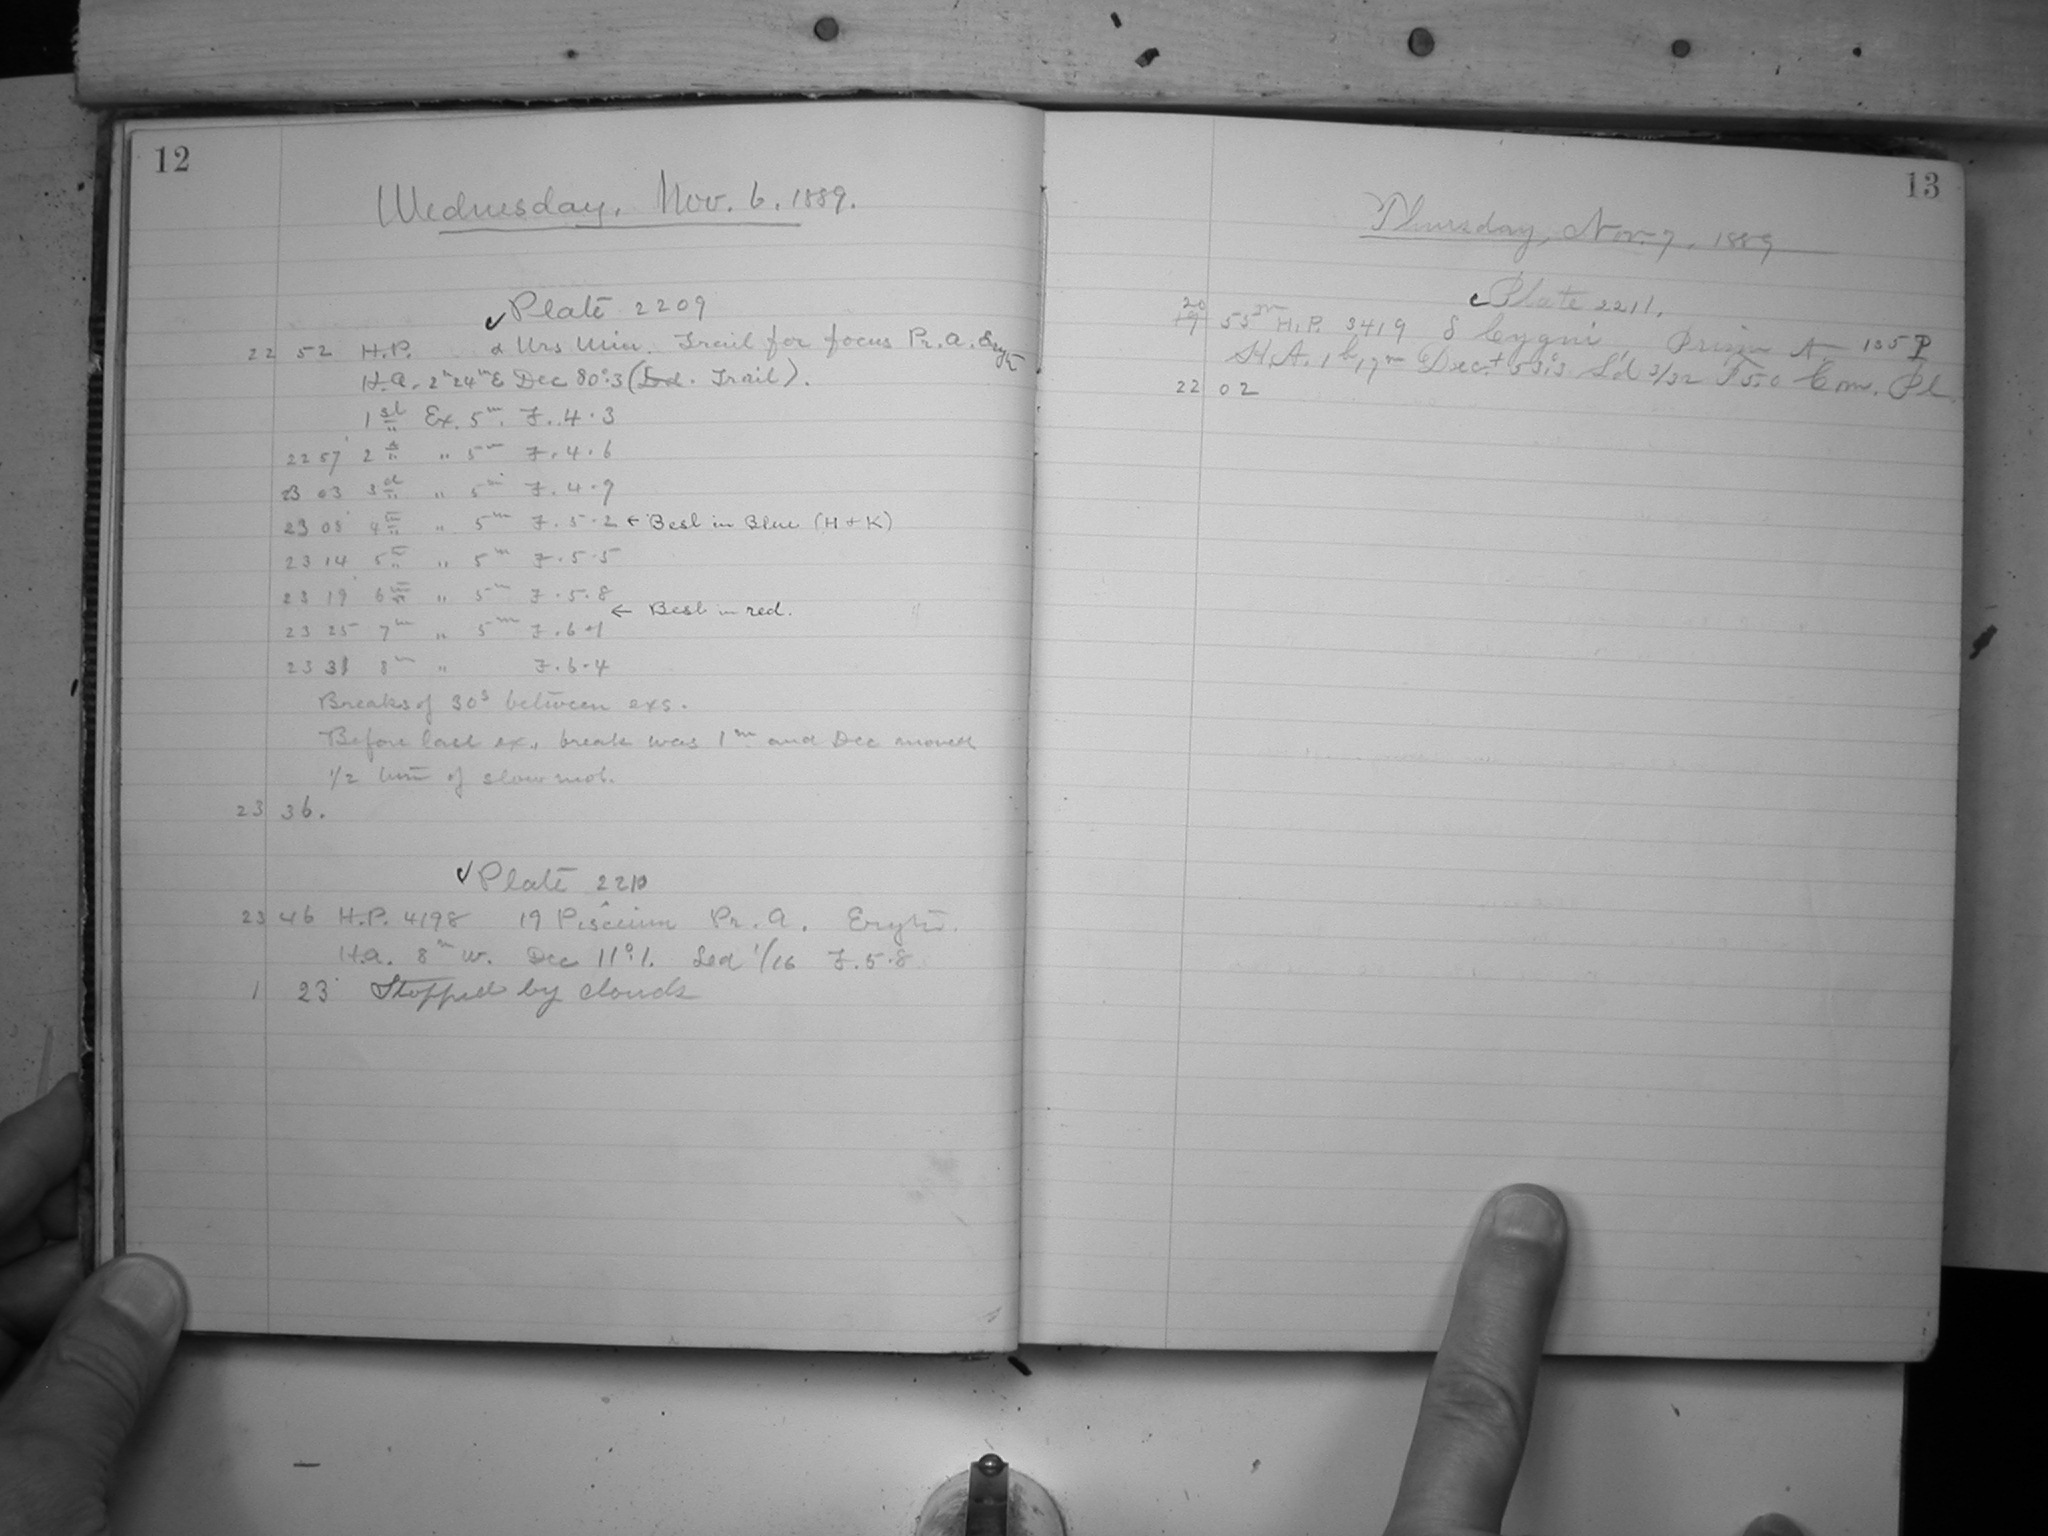 12
Wednesday, Nov. 6, 1889.
✓ Plate 2209
22 52 H.P. α Urs Min. Trail for focus Pr. A. Eryth
H.A. 2h 24m E Dec 80°.3 (Trail).
1st Ex. 5m F. 4.3
22 57 2d " 5m F. 4.6
23 03 3d " 5m F. 4.9
23 08 4th " 5m F. 5.2 ← Best in Blue (H + K)
23 14 5th " 5m F. 5.5
23 19 6th " 5m F. 5.8
← Best in red.
23 25 7th " 5m F. 6.1
23 31 8th " F. 6.4
Breaks of 30s between exs.
Before last ex., break was 1m and Dec moved
1/2 turn of slow mot.
23 36.
✓ Plate 2210
23 46 H.P. 4198 19 Piscium Pr. A. Eryth.
H.A. 8m W. Dec 11°.1. Led 1/16 F. 5.8
1 23 Stopped by clouds
13
Thursday, Nov. 7, 1889
Plate 2211.
20
19 55m H.P. 3419 δ Cygni Prism A.
H.A. 1h 17m Dec. + 53°.3 L'd 3/32 F 5.0 Com. Pl.
22 02